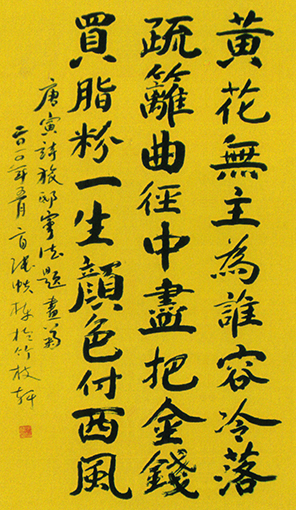 黃花無主為誰容冷落
疏籬曲径中盡把金錢
買脂粉一生顏色付西風
唐寅詩題畫菊
二〇一〇年五月於竹枝軒